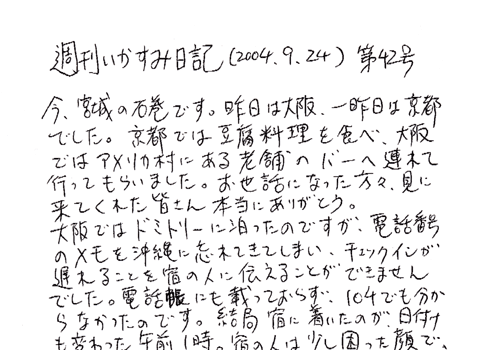 週刊いかすみ日記(2004.9.24)第42号
今、宮城の石巻です。昨日は大阪、一昨日は京都
でした。京都では豆腐料理を食べ、大阪
ではアメリカ村にある老舗のバーへ連れて
行ってもらいました。お世話になった方々、見に
来てくれた皆さん本当にありがとう。
大阪ではドミトリーに泊ったのですが、電話番号
のメモを沖縄に忘れてきてしまい、チェックインが
遅れることを宿の人に伝えることができません
でした。電話帳にも載っておらず、104でも分か
らなかったのです。結局宿に着いたのが、日付け
も変わった午前1時。宿の人は少し困った顔で、